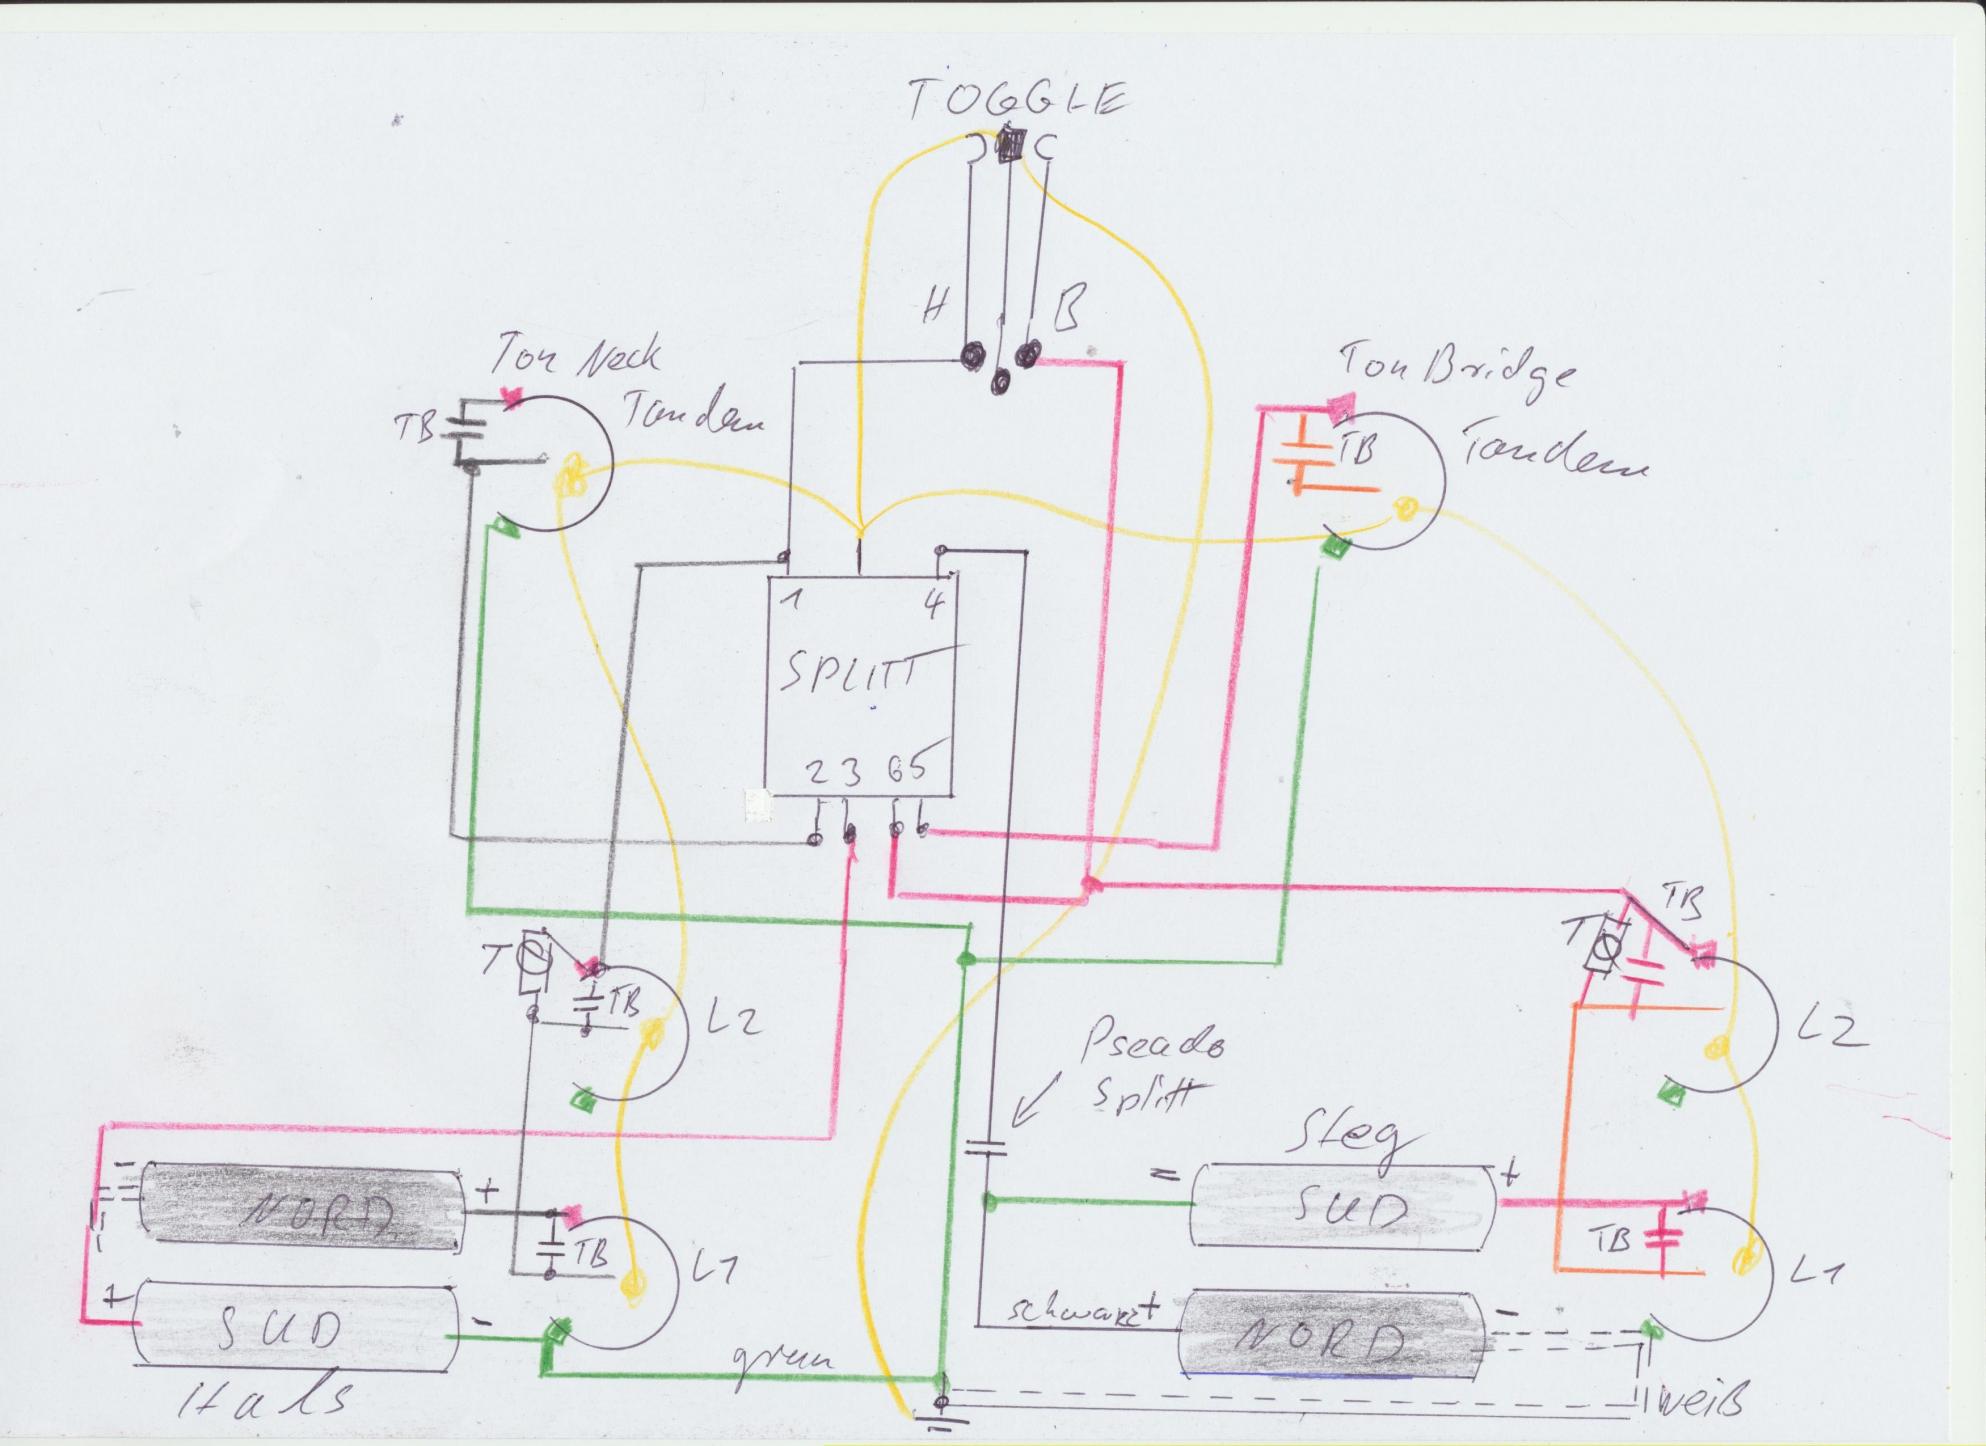 TOGGLE
H B
Ton Neck
Tandem
TB
Ton Bridge
Tandem
TB
1 4
SPLITT
2 3 6 5
T
TB
L2
TB
T
L2
Pseudo
Splitt
Steg
- NORD +
TB
L1
= SUD +
TB
L1
+ SUD -
schwarz + NORD -
grün
Hals
weiß